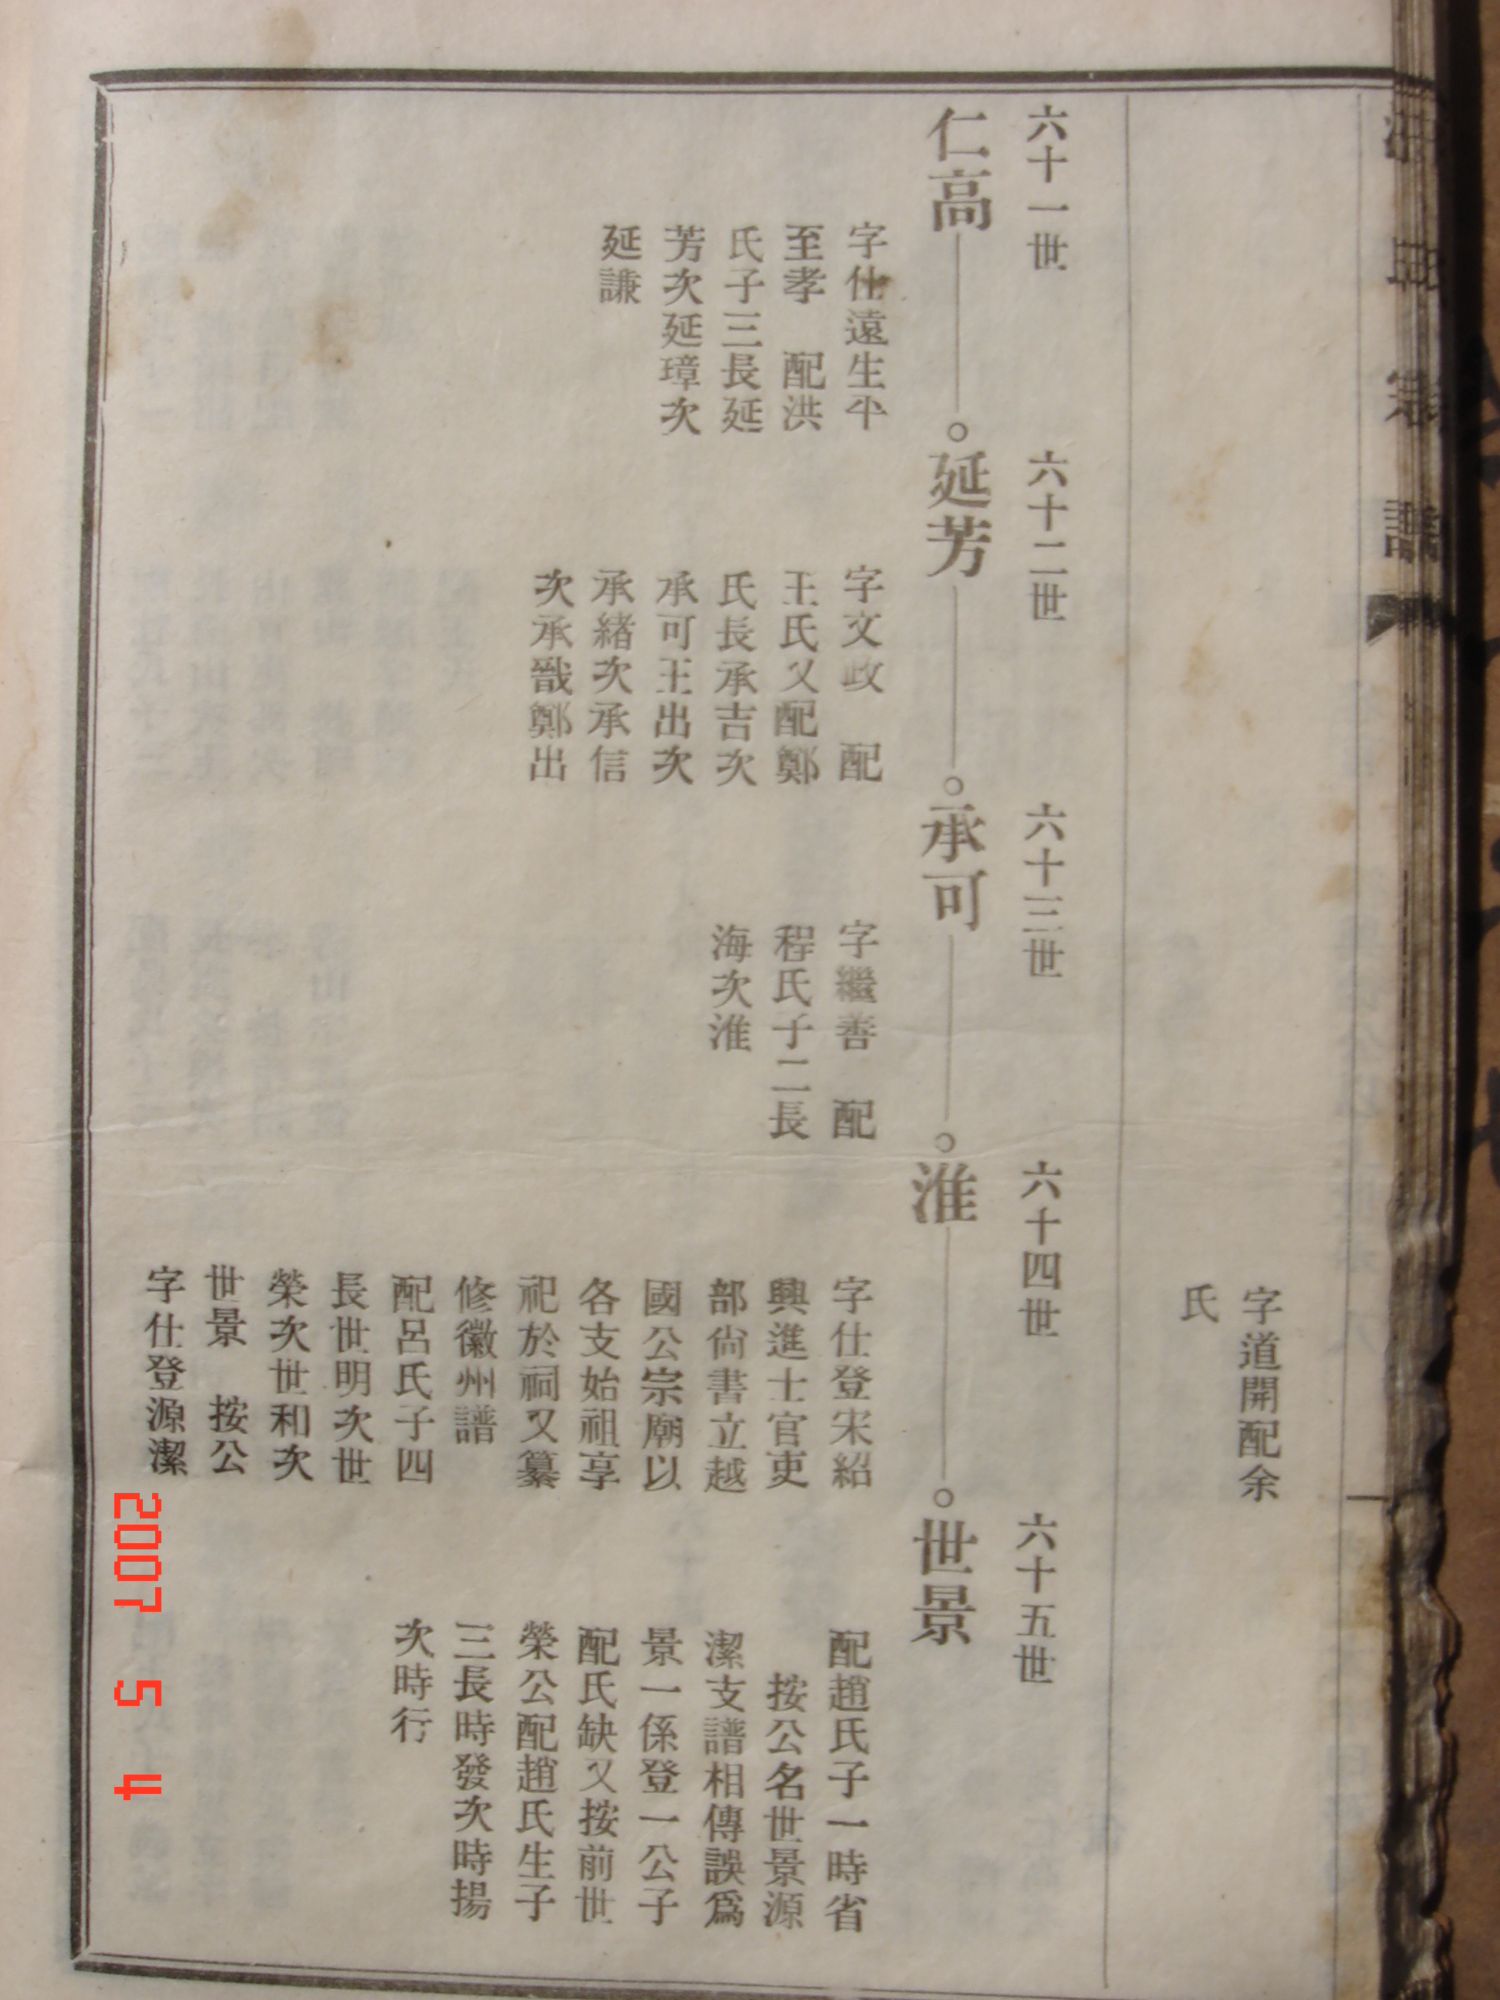 氏宗譜
字道開配余
氏
六十一世
六十二世
六十三世
六十四世
六十五世
仁高
延芳
承可
淮
世景
字仕遠生平
至孝 配洪
氏子三長延
芳次延璋次
延謙
字文政 配
王氏又配鄭
氏長承吉次
承可王出次
承緒次承信
次承戩鄭出
字繼善 配
程氏子二長
海次淮
字仕登宋紹
興進士官吏
部尙書立越
國公宗廟以
各支始祖享
祀於祠又纂
修徽州譜
配呂氏子四
長世明次世
榮次世和次
世景 按公
字仕登源潔
配趙氏子一時省
按公名世景源
潔支譜相傳誤爲
景一係登一公子
配氏缺又按前世
榮公配趙氏生子
三長時發次時揚
次時行
2007 5 4